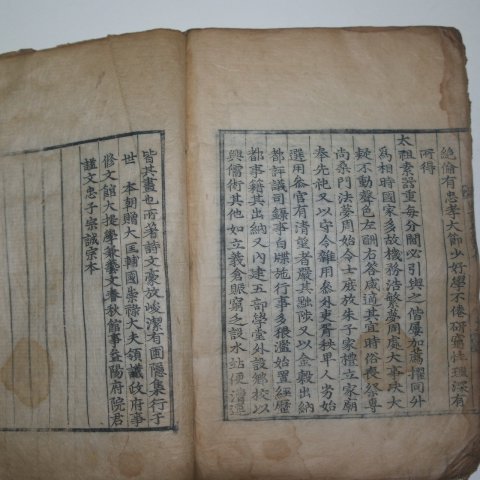 絶倫有忠孝大節少好學不倦研窮性理深有
所得
太祖素器重每分閫必引與之偕屢加薦擢同升
爲相時國家多故機務浩繁夢周處大事决大
疑不動聲色左酬右答咸適其宜時俗喪祭專
尚桑門法夢周始令士庶放朱子家禮立家廟
奉先祀又以守令雜用參外吏胥秩卑人劣始
選用參官有淸望者嚴其黜陟又以金穀出納
都評議司錄事白牒施行事多猥濫始置經歷
都事籍其出納又內建五部學堂外設鄕校以
興儒術其他如立義倉賑窮乏設水站便漕運
皆其畫也所著詩文豪放峻潔有圃隱集行于
世 本朝贈大匡輔國崇祿大夫領議政府事
修文館大提學兼藝文春秋館事益陽府院君
謚文忠子宗誠宗本